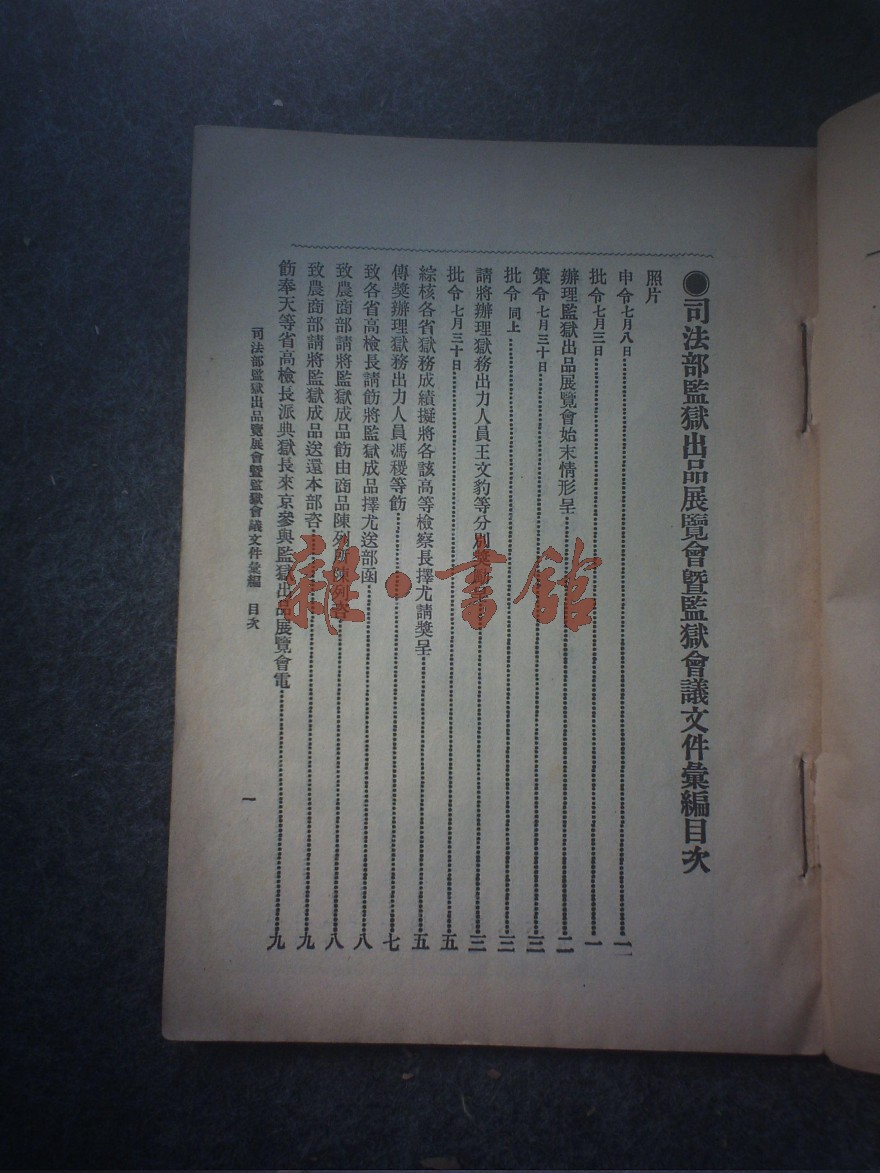 ●司法部監獄出品展覽會暨監獄會議文件彙編目次
照片
申令七月八日………一
批令七月三日………一
辦理監獄出品展覽會始末情形呈………二
策令七月三十日………三
批令同上………三
請將辦理獄務出力人員王文豹等分別獎勵呈………三
批令七月三十日………五
綜核各省獄務成績擬將各該高等檢察長擇尤請獎呈………五
傳獎辦理獄務出力人員馮稷等飭………七
致各省高檢長請飭將監獄成品擇尤送部函………八
致農商部請將監獄成品飭由商品陳列所陳列咨………八
致農商部請將監獄成品送還本部咨………九
飭奉天等省高檢長派典獄長來京參與監獄出品展覽會電………九
司法部監獄出品覽展會暨監獄會議文件彙編 目次
一
雜·書館